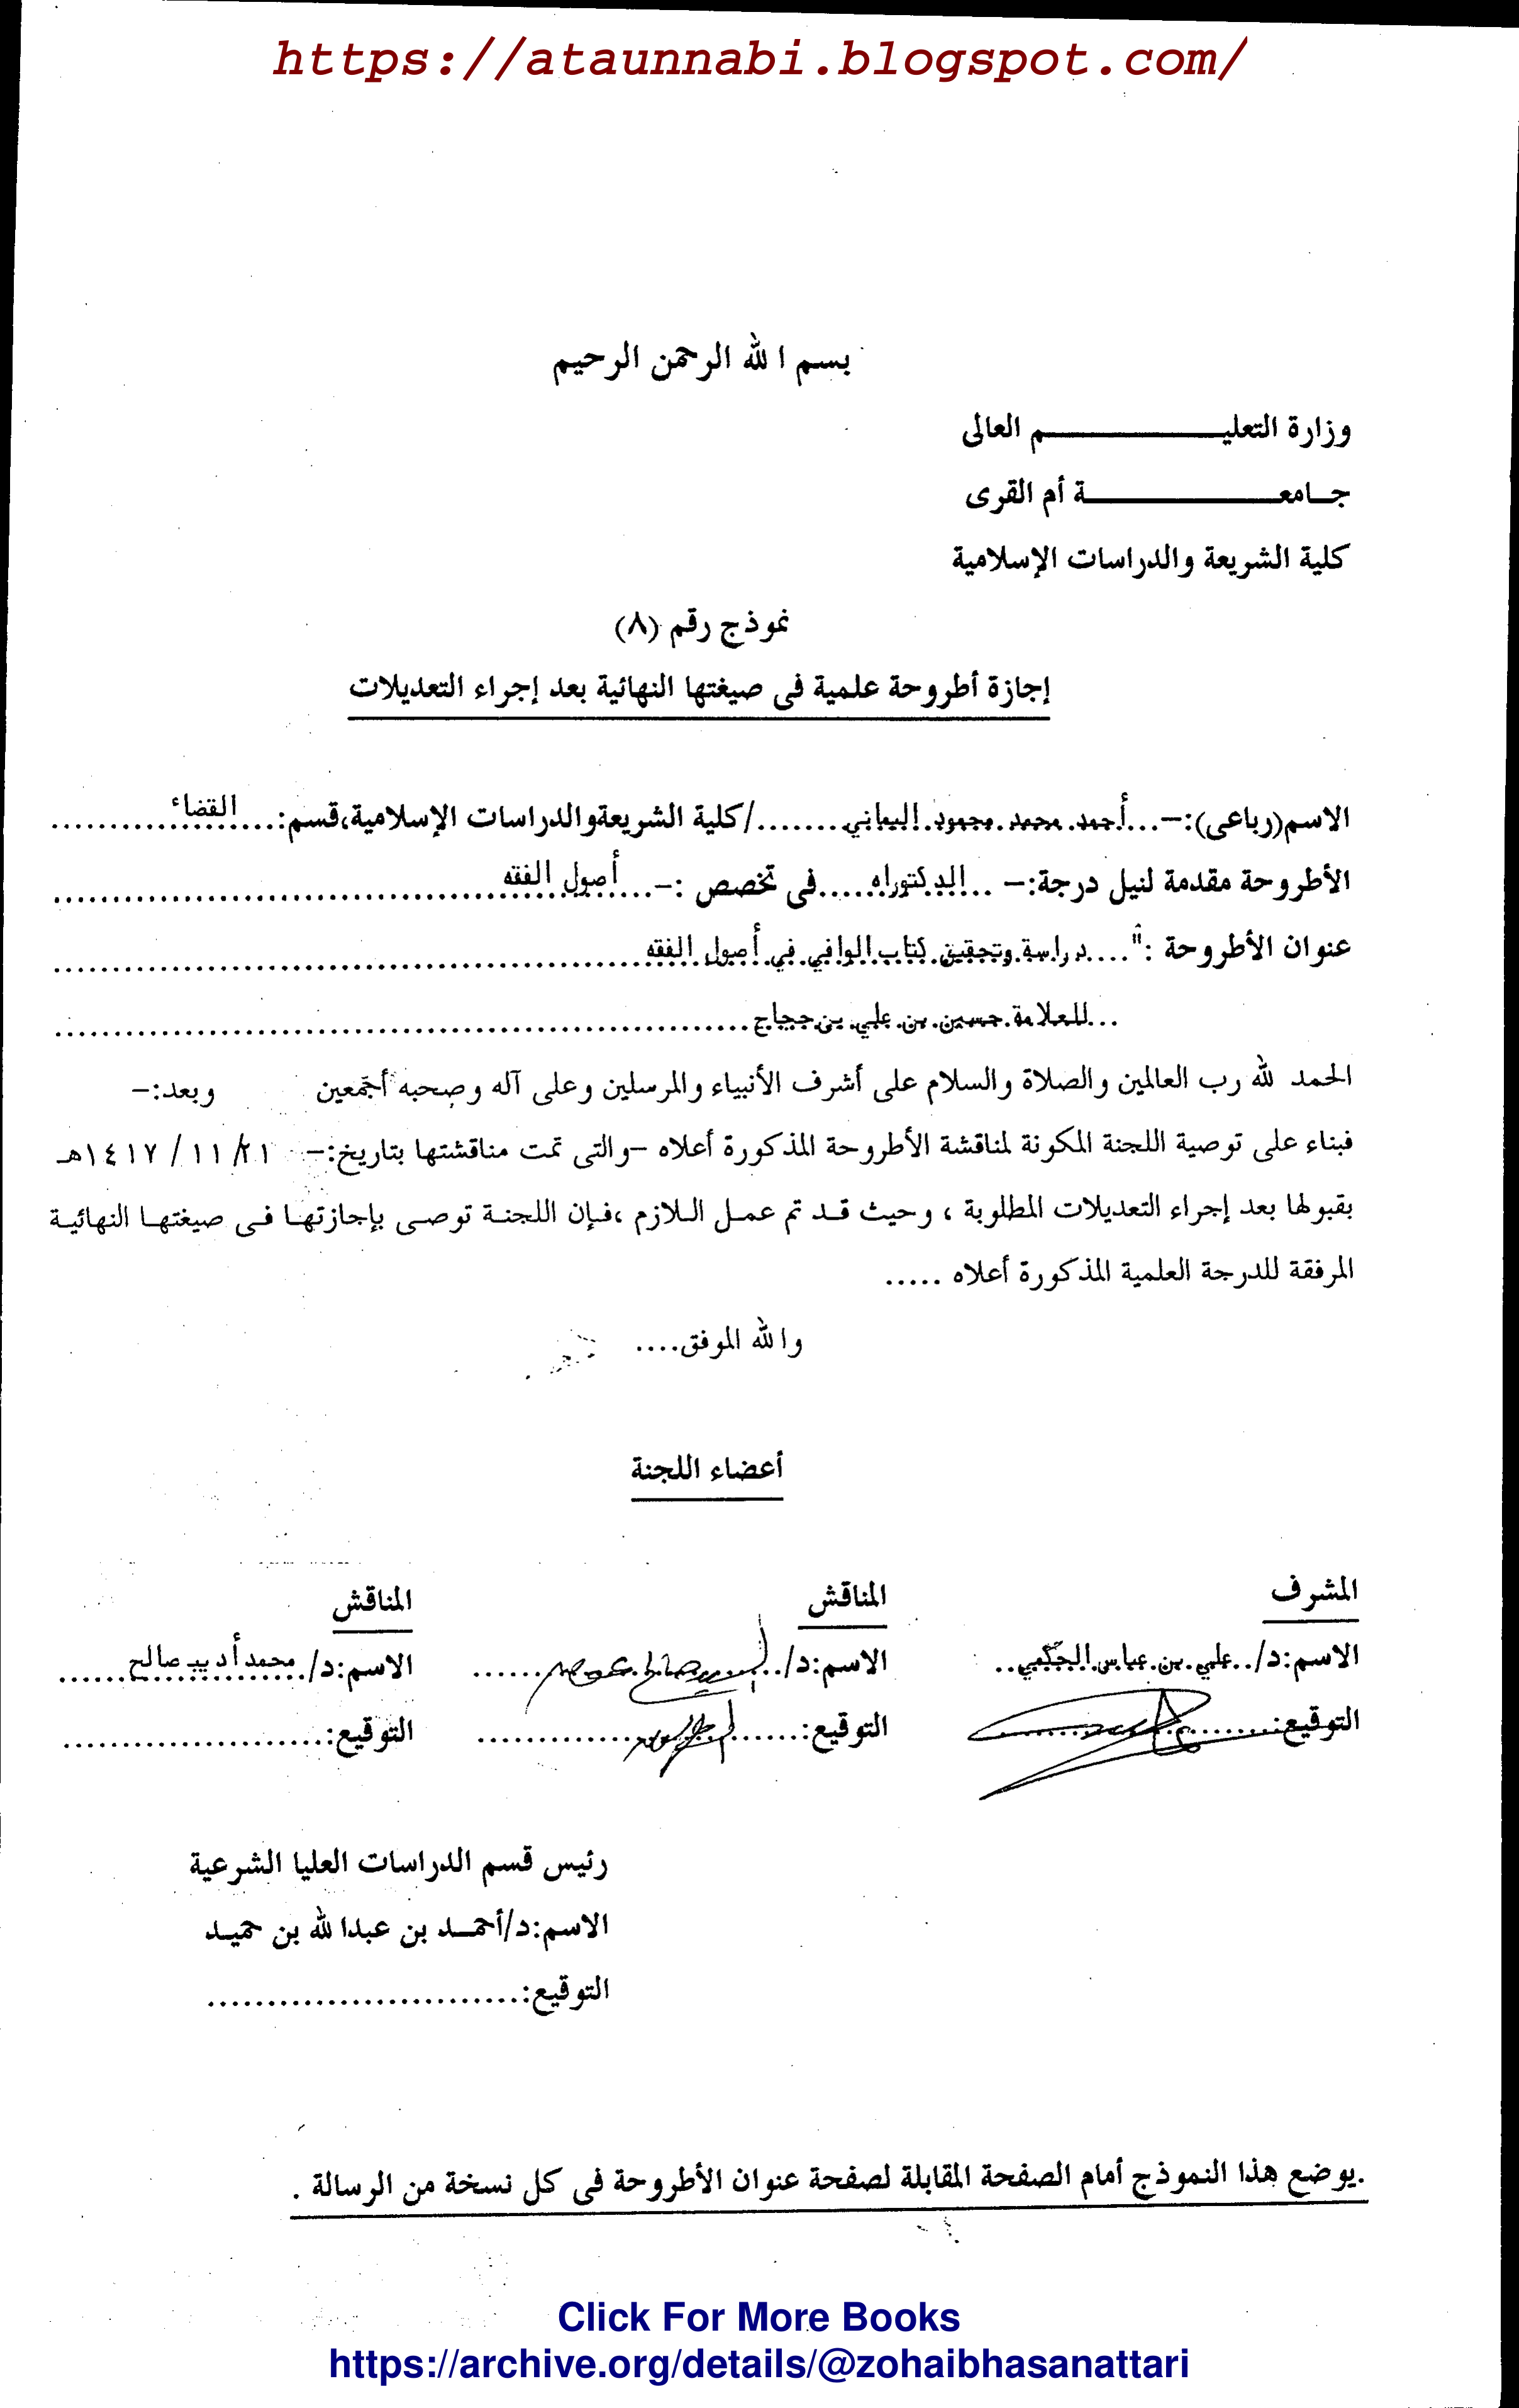 https://ataunnabi.blogspot.com/
بسم الله الرحمن الرحيم
وزارة التعليـــــــــــــم العالى
جــامعــــــــــــــة أم القرى
كلية الشريعة والدراسات الإسلامية
نموذج رقم (٨)
إجازة أطروحة علمية فى صيغتها النهائية بعد إجراء التعديلات
الاسم(رباعى):-...أحمد محمد محمود اليماني......./كلية الشريعة والدراسات الإسلامية،قسم:...القضاء...............
الأطروحة مقدمة لنيل درجة:- ...الدكتوراه.....فى تخصص :-...أصول الفقه...............
عنوان الأطروحة :"....دراسة وتحقيق كتاب الوافي في أصول الفقه...............
...للعلامة حسين بن علي بن حجاج...............
الحمد لله رب العالمين والصلاة والسلام على أشرف الأنبياء والمرسلين وعلى آله وصحبه أجمعين وبعد:-
فبناء على توصية اللجنة المكونة لمناقشة الأطروحة المذكورة أعلاه -والتى تمت مناقشتها بتاريخ:- ٢١/ ١١ / ١٤١٧هـ
بقبولها بعد إجراء التعديلات المطلوبة ، وحيث قـد تم عمـل الـلازم ،فـإن اللجنـة توصـى بإجازتهـا فـى صيغتهـا النهائيـة
المرفقة للدرجة العلمية المذكورة أعلاه .....
والله الموفق....
أعضاء اللجنة
المشرف المناقش المناقش
الاسم:د/..علي بن عباس الحكمي.. الاسم:د/............... الاسم:د/محمد أديب صالح......
التوقيع:............... التوقيع:............... التوقيع:......................
رئيس قسم الدراسات العليا الشرعية
الاسم:د/أحمــد بن عبدالله بن حميـد
التوقيع:..........................
.يوضع هذا النموذج أمام الصفحة المقابلة لصفحة عنوان الأطروحة فى كل نسخة من الرسالة .
Click For More Books
https://archive.org/details/@zohaibhasanattari